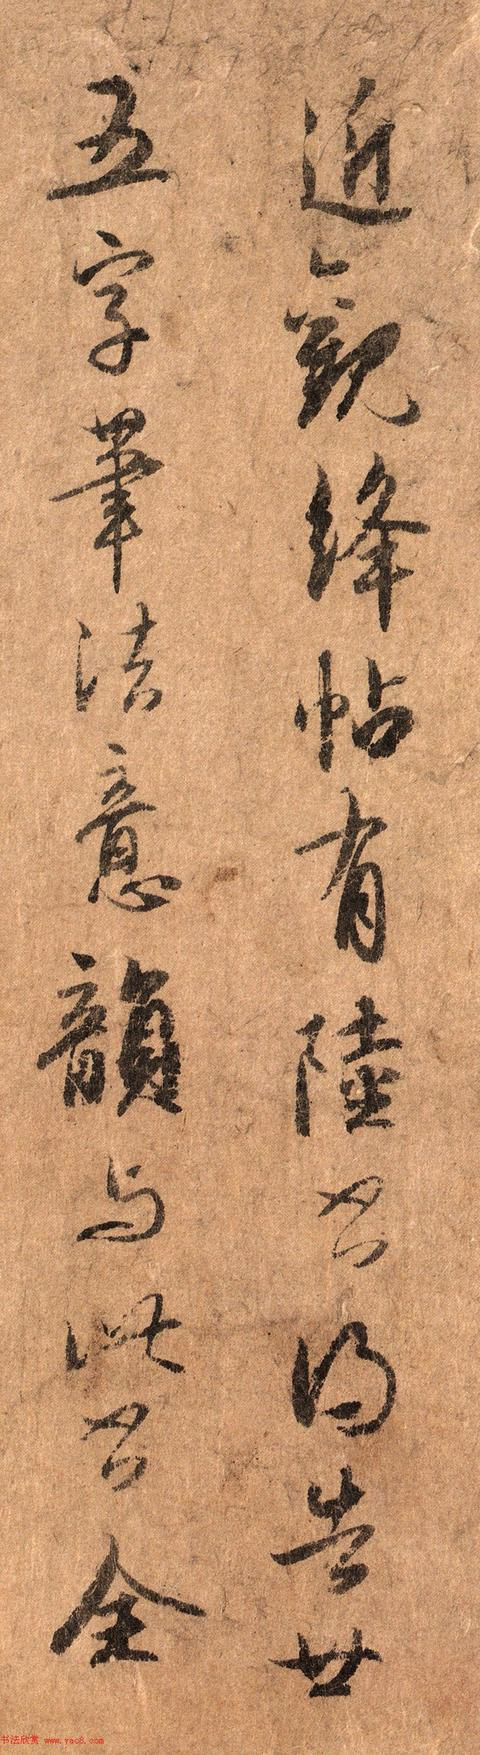 近觀絳帖有陸書得告廿
五字筆法意韻与此書全
书法欣赏 www.yac8.com